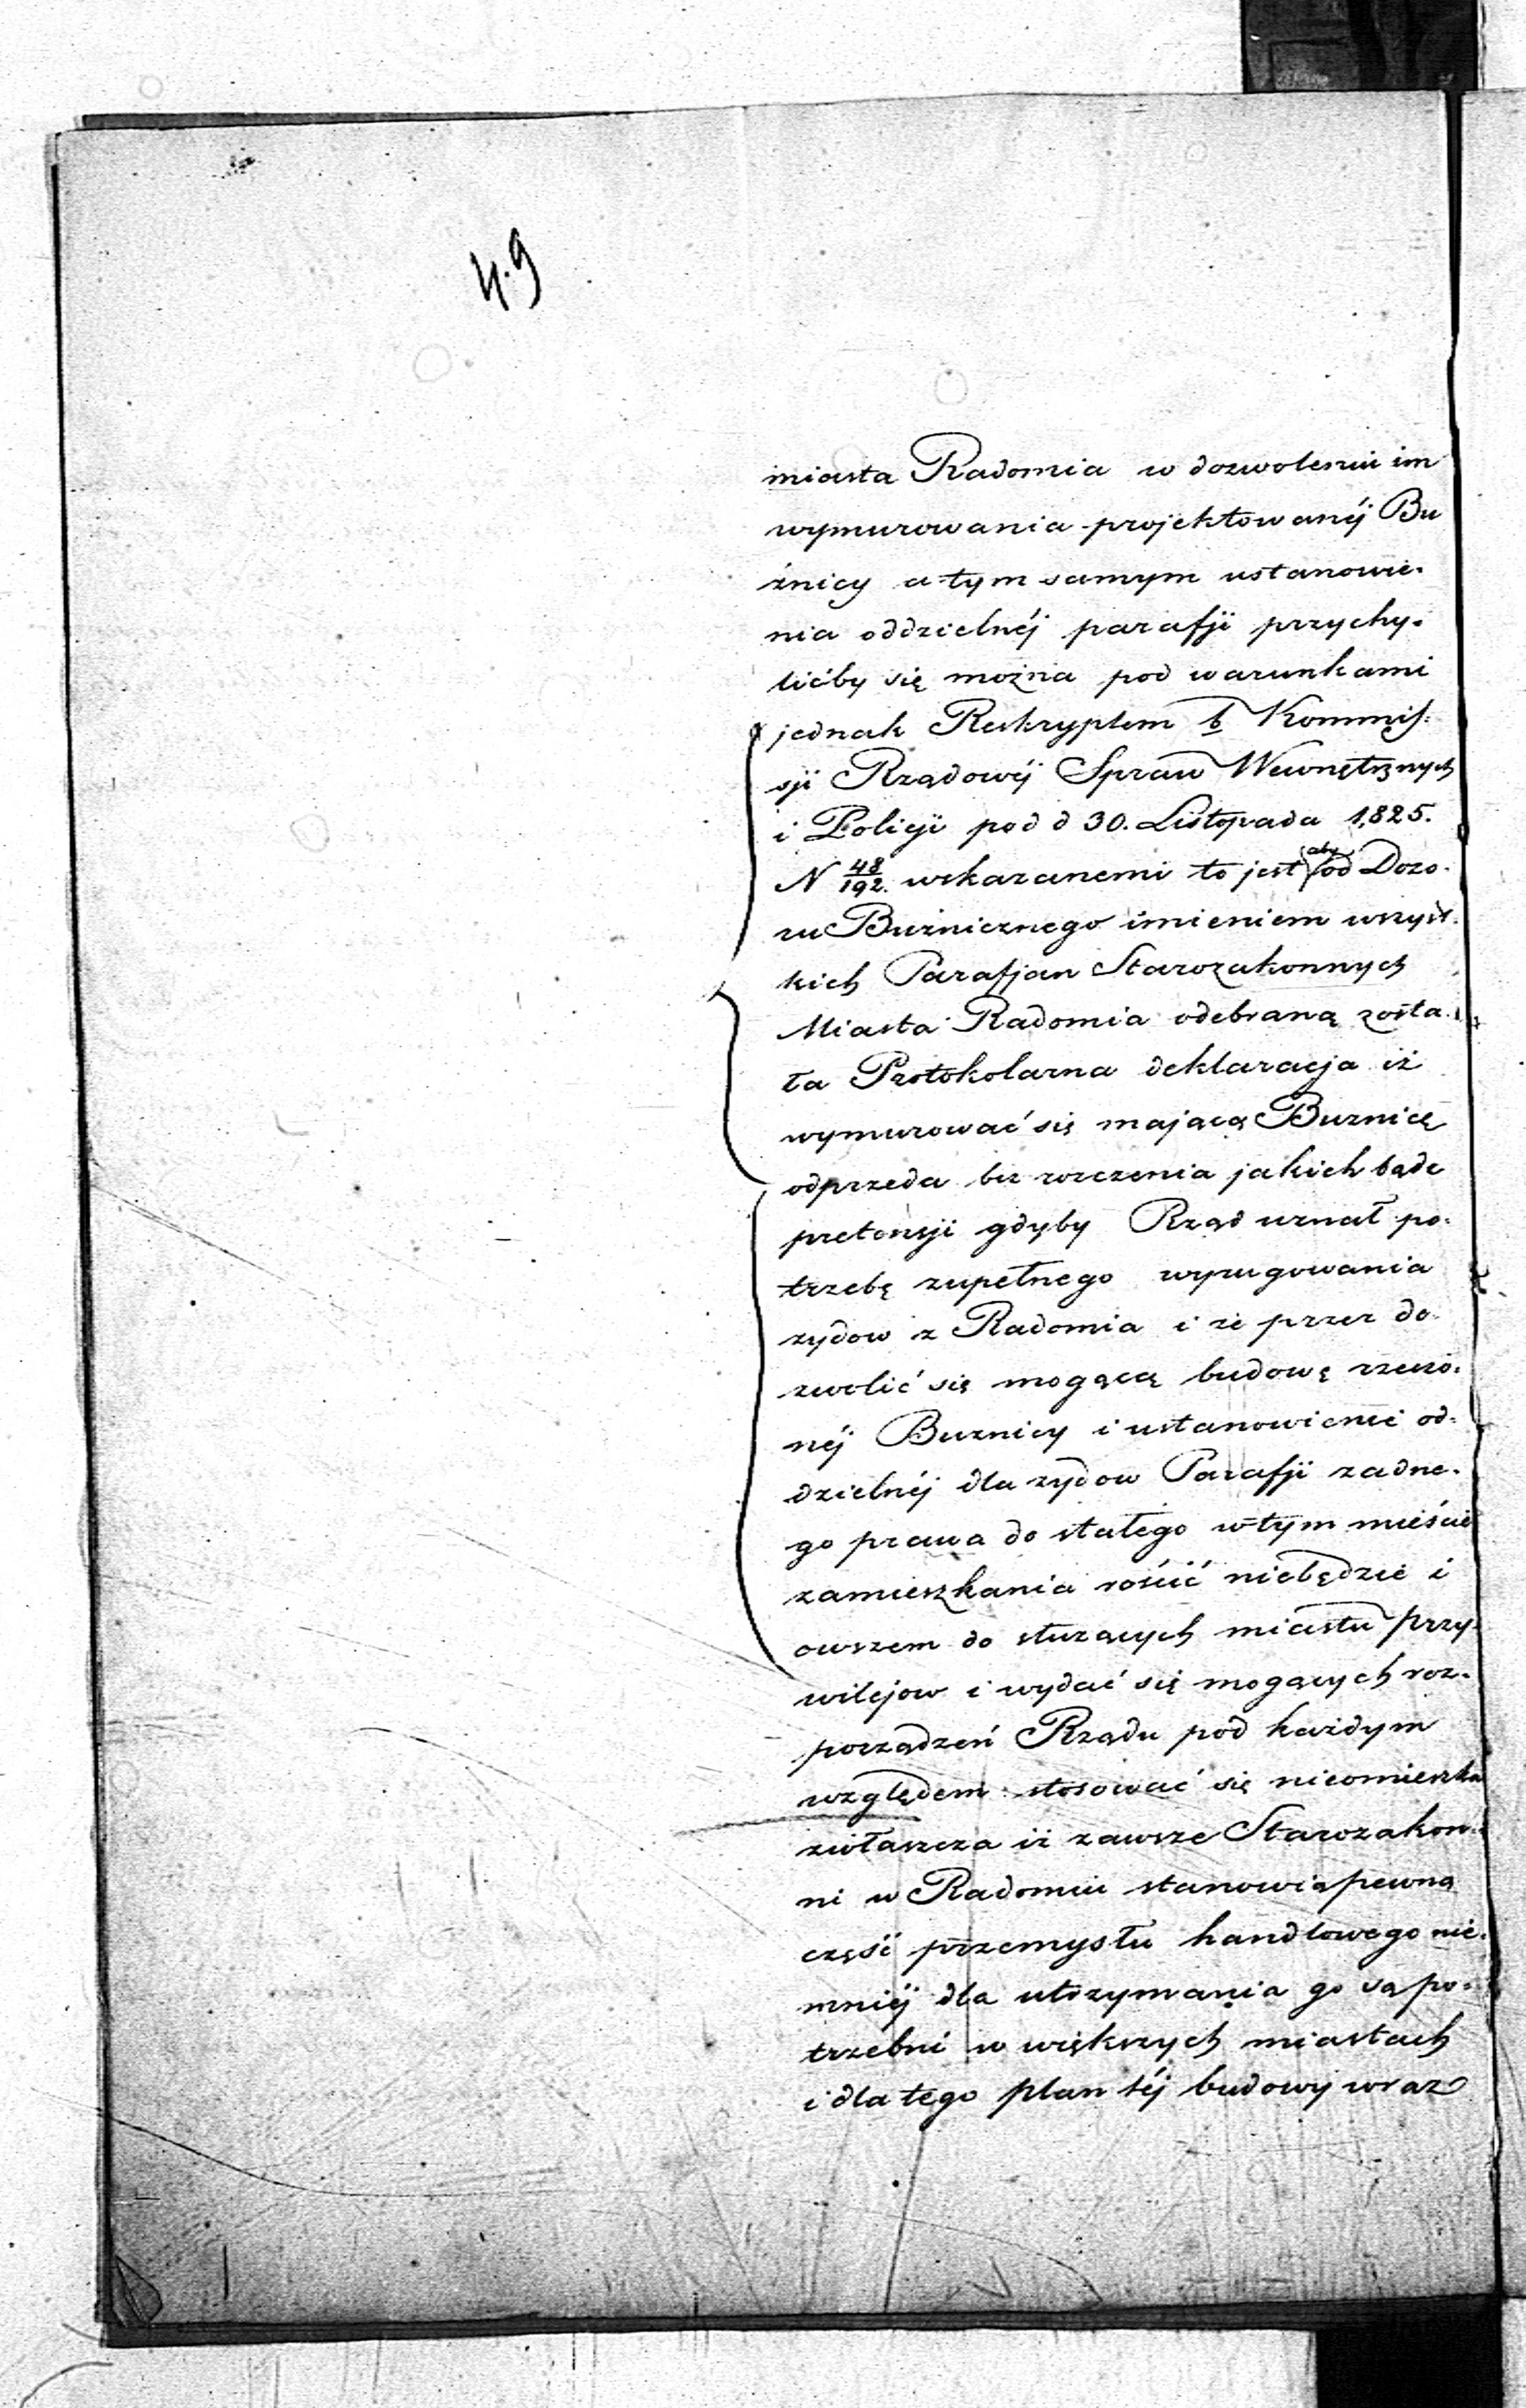 4.9
miasta Radomia w dozwoleniu im
wymurowania projektowanéj Bu
żnicy a tym samym ustanowie-
nia oddzielnéj parafji przychy-
lićby się można pod warunkami
jednak Reskryptem b Kommis-
sji Rządowéj Spraw Wewnętrznych
i Policji pod d 30. Listopada 1,825.
N 48/192. wskazanemi to jest aby od Dozo-
ru Bużnicznego imieniem wszyst-
kich Parafjan Starozakonnych
Miasta Radomia odebraną zosta-
ła Protokolarna deklaracja iż
wymurować się mającą Buznicę
odprzeda bez roszczenia jakich bądź
pretensji gdyby Rząd uznał po-
trzebę zupełnego wyrugowania
zydow z Radomia i że przez do-
zwolić się mogącą budowę rzeczo-
néj Buznicy i ustanowienie od-
dzielnéj dla zydow Parafji zadne-
go prawa do stałego w tym mieście
zamieszkania rościć niebędzie i
owszem do służących miastu przy-
wilejow i wydać się mogących roz-
porządzeń Rządu pod każdym
względem stosować się nieomieszka
zwłaszcza iż zawsze Starozakon-
ni w Radomiu stanowią pewną
część przemysłu handlowego nie-
mniéj dla utrzymania go są po-
trzebni w większych miastach
i dla tego plan téj budowy wraz